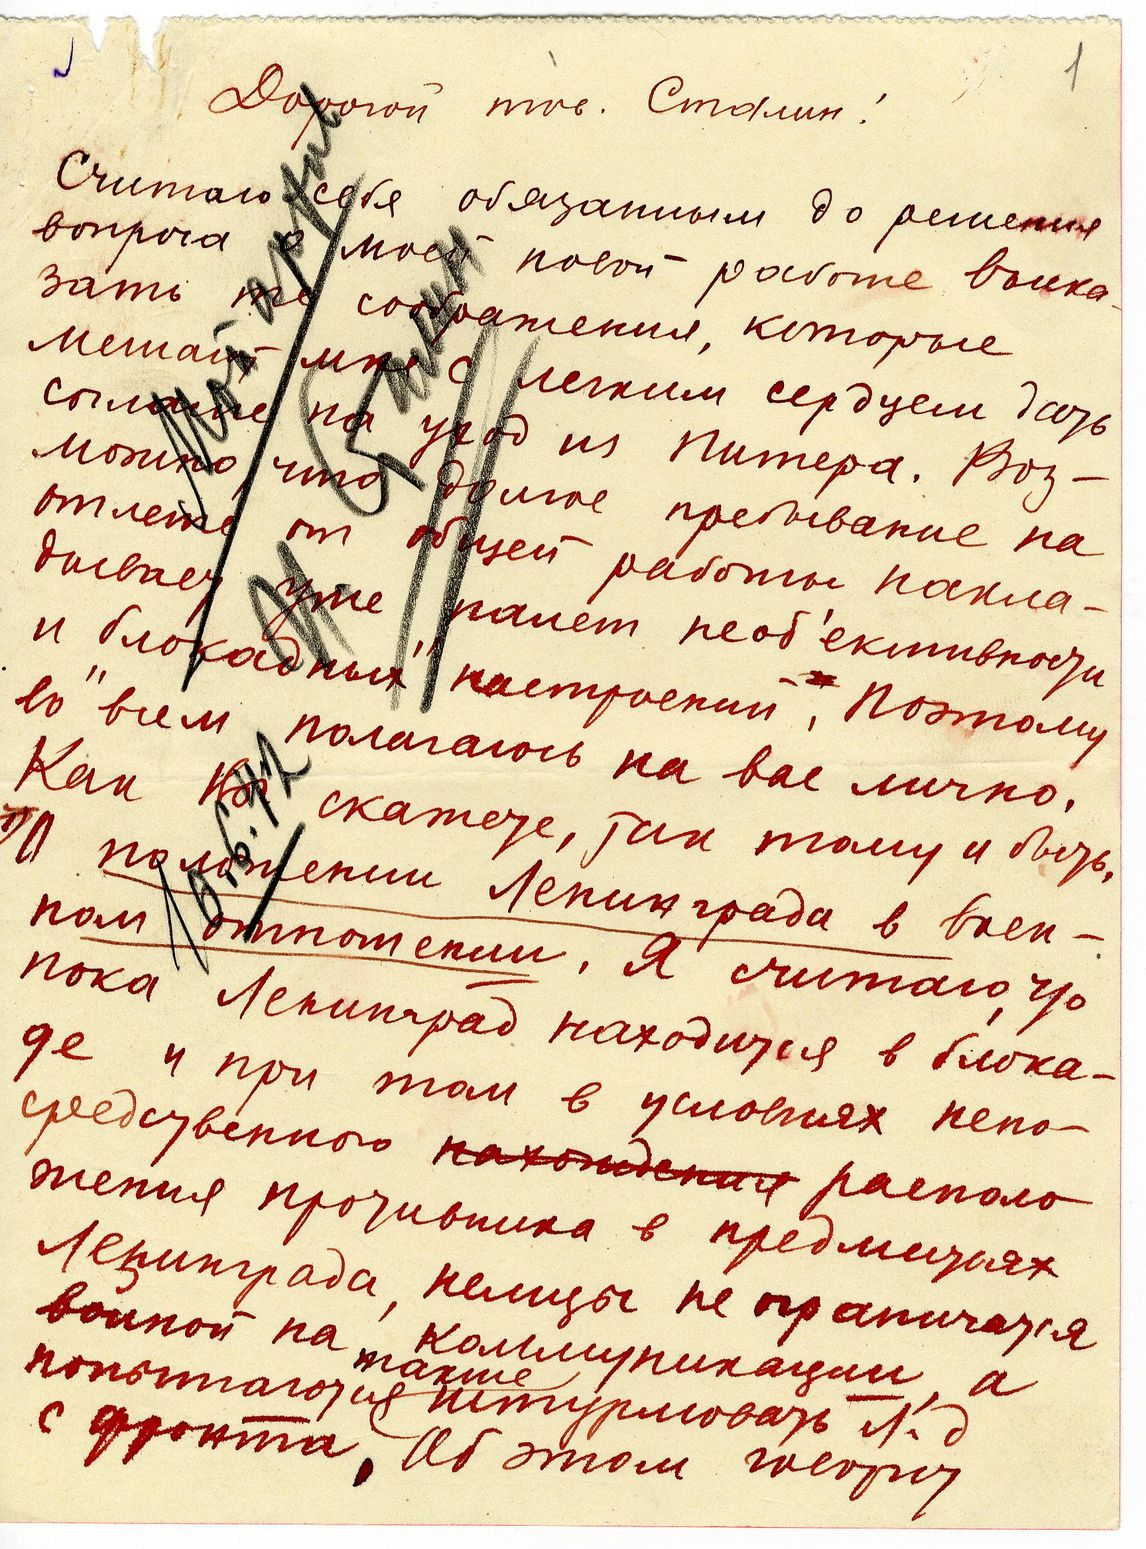 1
Дорогой тов. Сталин!
Считаю себя обязанным до решения
вопроса о моей новой работе выска-
зать те соображения, которые
мешают мне с легким сердцем дать
согласие на уход из Питера. Воз-
можно, что долгое пребывание на
отлете от общей работы накла-
дывает уже налет необ'ективности
и "блокадных" настроений". Поэтому
во всем полагаюсь на вас лично.
Как Вы скажете, так тому и быть.
1) О положении Ленинграда в воен-
ном отношении. Я считаю, что
пока Ленинград находится в блока-
де и при том в условиях непо-
средственного нахождения располо
жения противника в предместьях
Ленинграда, немцы не ограничатся
войной на коммуникации, а
попытаются также штурмовать Л-д
с фронта. Об этом говорит
Мой архив
Сталин
10.6.42